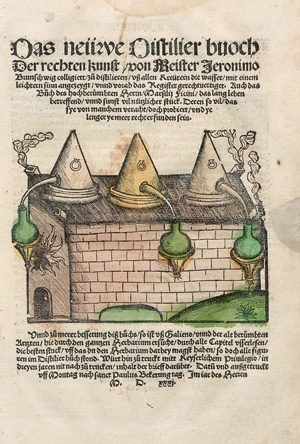 Das neüwe Distilier buoch
Der rechten kunst / von Meister Jeronimo
Brunschwig colligiert / zů distilieren / vß allen Kreütern die wasser / mit einem
leichtern sinn angezeygt / vnnd vorab das Register gerechtuertiget. Auch das
Bůch des hochberümbten Herrn Marsilij Ficini / das lang leben
betreffend / vnnd sunst vil nützlicher stück. Deren so vil / das
sye von manchem veracht / doch probiert / vnd ye
lenger ye mere rechter funden sein.
Vnnd zů merer besserung diß bůchs / so ist vß Galieno / vnnd der alt berümbten
Artzten / biß durch den gantzen Herbarium ersůcht / durch alle Capitel vsserlesen /
die besten stück / vff das du den Herbarium darbey magst haben / so doch alle figu
ren im Distilier bůch stond. Würt hin zů truckt mitt Keyserlichem Priuilegio / in
dreyen jaren nit nach zů trucken / inhalt der brieff darüber. Datũ vnd außgetruckt
vff Montag nach sanct Paulus Bekerung tag. Jm iar des Herren
M. D. XXXJ.